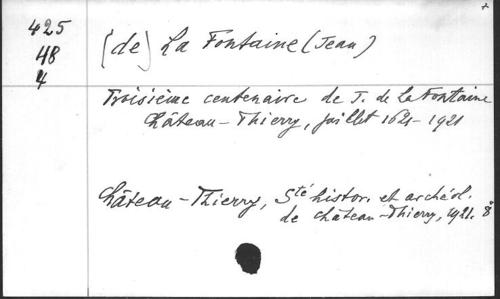 425
48
4
(de) La Fontaine (Jean)
Troisième centenaire de J. de la Fontaine
Château-Thierry, Juillet 1621-1921
Château-Thierry, Sté histor. et archéol.
de Château-Thierry, 1921. 8°